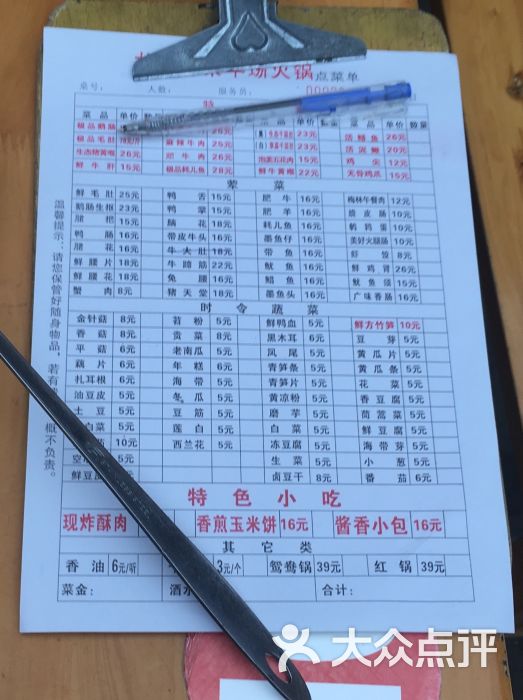 场火锅点菜单
桌号: 人数: 服务员:
特
菜品 单价 菜品 单价 数量 菜品 单价 数量
极品鹅肠 25元 23元 活鳝鱼 26元
极品毛肚 麻辣牛肉 26元 23元 活泥鳅 20元
生态猪黄喉 26元 嫩牛肉 26元 泡姜五花肉 15元 鸡尖 12元
鲜牛肝 15元 极品耗儿鱼 28元 鲜牛黄喉 22元 无骨鸡爪 15元
荤菜
鲜毛肚 25元 鸭舌 15元 肥牛 16元 梅林午餐肉 12元
鹅肠生抠 23元 鸭掌 15元 肥羊 16元 脆皮肠 10元
脑花 18元 耗儿鱼 16元 鹌鹑蛋 10元
鸭肠 16元 带皮牛头 16元 墨鱼仔 16元 美好火腿肠 10元
牛大肚 18元 带鱼 16元 虾饺 8元
鲜腰片 18元 牛蹄筋 22元 鱿鱼 16元 鲜鸡胗 26元
鲜腰花 18元 兔腰 16元 鲳鱼 16元 鱿鱼须 15元
蟹肉 8元 猪天堂 18元 墨鱼头 16元 广味香肠 16元
时令蔬菜
金针菇 8元 苕粉 5元 鲜鸭血 5元 鲜方竹笋 10元
香菇 8元 贡菜 8元 黑木耳 6元 豆芽 5元
平菇 6元 老南瓜 5元 凤尾 5元 黄瓜片 5元
藕片 6元 年糕 6元 青笋条 5元 黄瓜条 5元
折耳根 6元 海带 5元 青笋片 5元 花菜 5元
油豆皮 5元 冬瓜 5元 黄凉粉 5元 香豆腐 5元
土豆 5元 豆筋 5元 磨芋 5元 茼蒿菜 5元
白菜 5元 莲白 5元 白菜 5元 鲜豆腐 5元
10元 西兰花 6元 冻豆腐 5元 海带芽 5元
空 5元 生菜 5元 小葱 5元
鲜豆 卤豆干 8元 番茄 6元
特色小吃
现炸酥肉 香煎玉米饼 16元 酱香小包 16元
其它类
香油 6元/听 3元/个 鸳鸯锅 39元 红锅 39元
菜金: 酒水 合计:
温馨提示:请您保管好随身物品,若有 概不负责。
大众点评